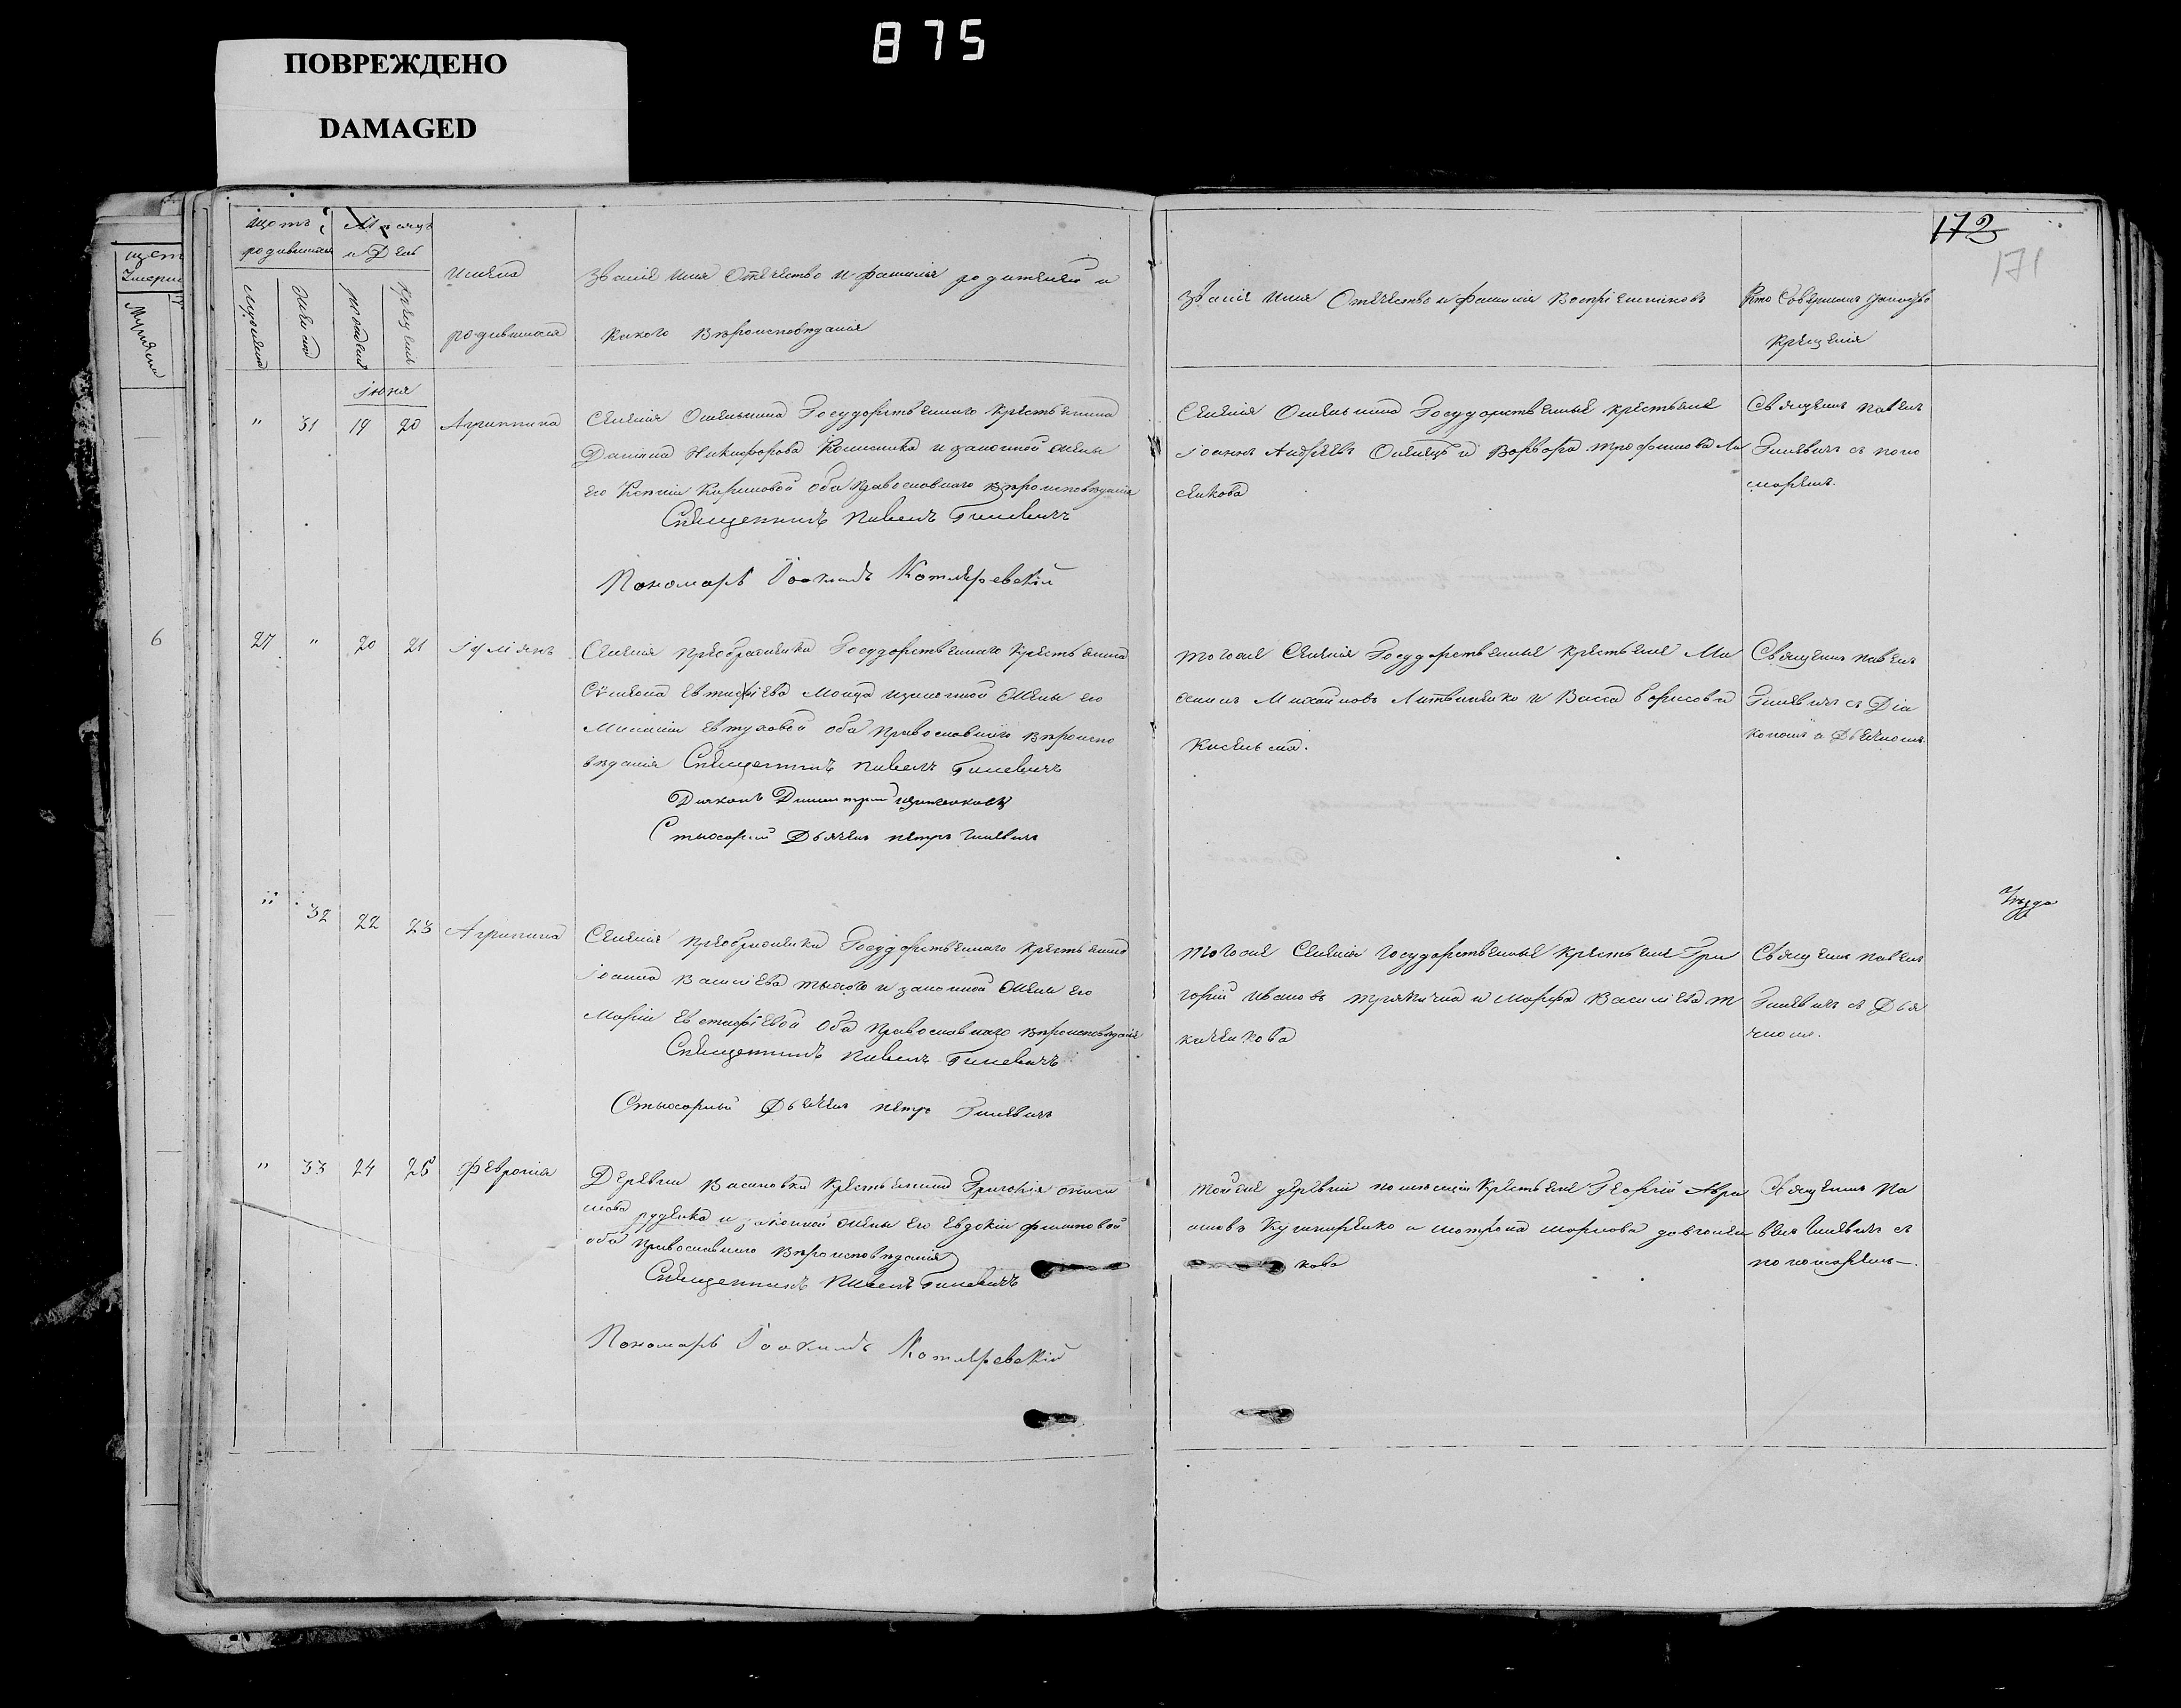 875
ПОВРЕЖДЕНО
DAMAGED
172
171
Щотъ родившихся
Месяцъ и День
Имена родившихся
Званіе Имя Отчество и фамилія родителей и
какого Вѣроисповѣданія
Званіе Имя Отчество и фамилія Воспріемниковъ
Кто Совершалъ таинство
Крещенія
Мужеска
Женска
рожденія
крещенія
Іюня
" 31 19 20 Агрипина
Селенія Государственнаго Крестьянина
Даніила Никифорова и законной жены
его Ксеніи Карповой оба Православнаго Вѣроисповѣданія
Священникъ Павелъ Гилевичъ
Пономарь Іоакимъ Котляревскій
Селенія Государственные крестьяне
Іоаннъ Андреевъ и Варвара Трофимова Ли
сенкова
Священ Павелъ
Гилевичъ съ поно
маремъ.
6
27 " 20 21 Іуліянъ
Селенія Преображенки Государственнаго Крестьянина
Сѵмеона Евтифіева и законной жены его
Меланіи Евтуховой оба Православнаго Вѣроиспо
вѣданія Священникъ Павелъ Гилевичъ
Діаконъ Димитрій
Стихарный Дьячекъ Петръ Гилевичъ
Того же Селенія Государственные Крестьяне Ма
ксимъ Михайловъ Литвиненко и Васса Борисова
Священ Павелъ
Гилевичъ съ Діа
кономъ и Дьячкомъ.
" 32 22 23 Агрипина
Селенія Преображенки Государственнаго Крестьянина
Іоанна Василіева и законной жены его
Маріи Евстафіевой оба Православнаго Вѣроисповѣданія
Священникъ Павелъ Гилевичъ
Стихарный Дьячекъ Петръ Гилевичъ
Того же Селенія Государственные Крестьяне Гри
горій Ивановъ и Марфа Василіева Т
каченкова
Священ Павелъ
Гилевичъ съ Дья
чкомъ.
" 33 24 25 Февронія
Деревни Васиновки Крестьянина Григорія Аниси
мова Руденка и законной жены его Евдокіи Филиповой
оба Православнаго Вѣроисповѣданія
Священникъ Павелъ Гилевичъ
Пономарь Іоакимъ Котляревскій
Той же деревни Крестьяне Георгій Авра
амовъ Кушниренко и Матрона Маркова
кова
Священ Па
велъ Гилевичъ съ
пономаремъ.